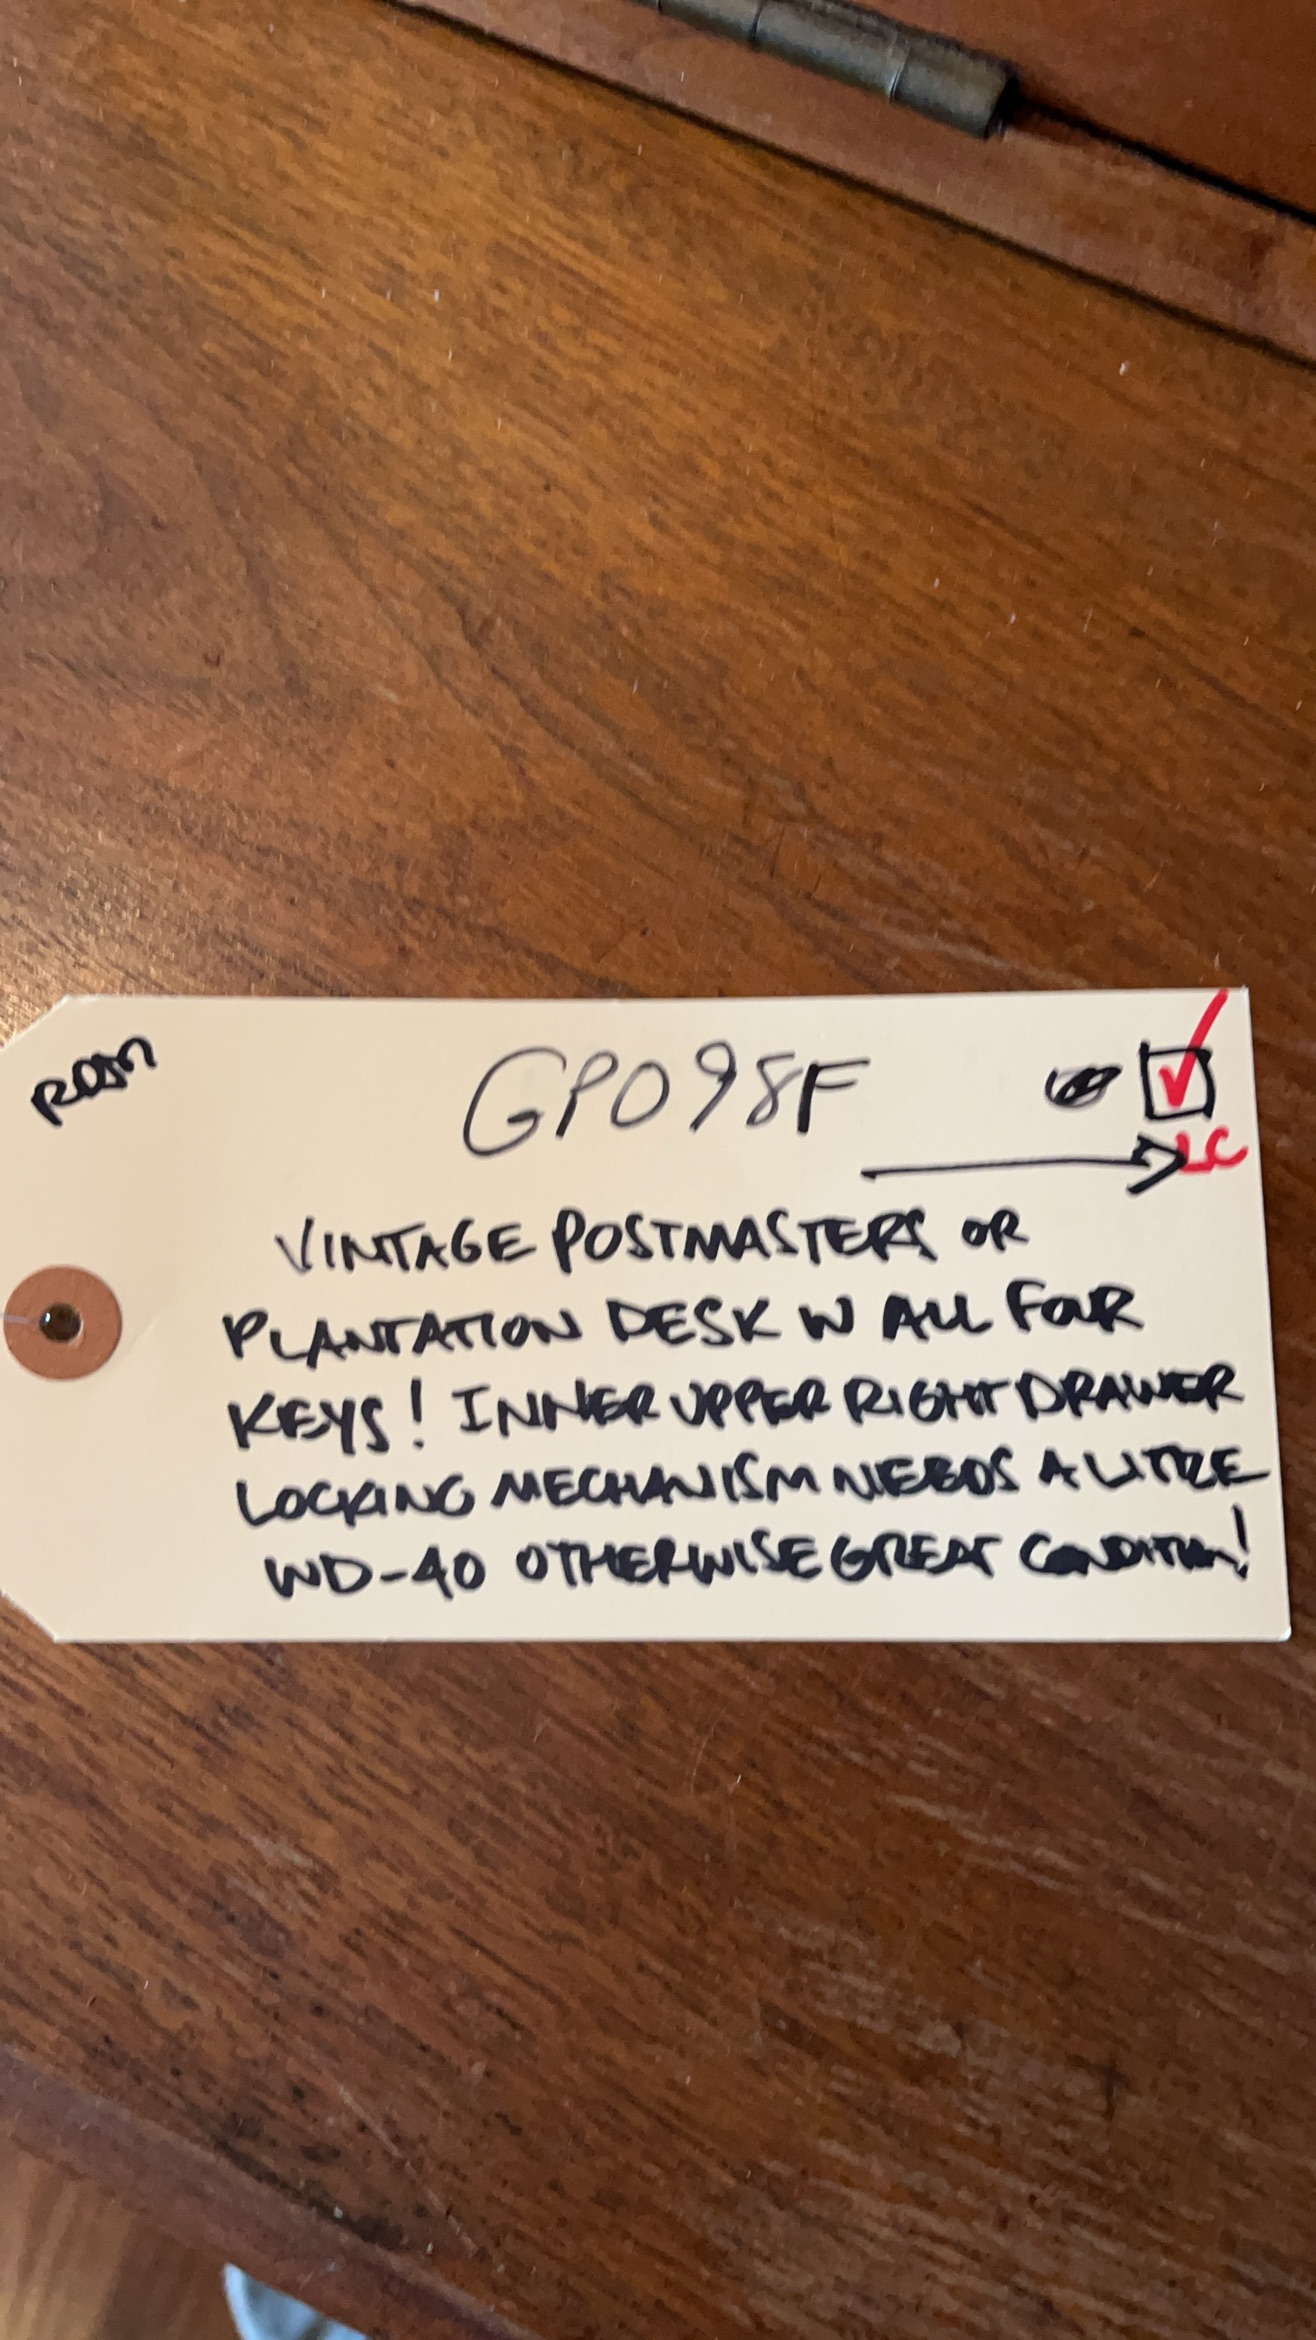 GP098F
LC
VINTAGE POSTMASTERS OR
PLANTATION DESK W ALL FOUR
KEYS! INNER UPPER RIGHT DRAWER
LOCKING MECHANISM NEEDS A LITTLE
WD-40 OTHERWISE GREAT CONDITION!